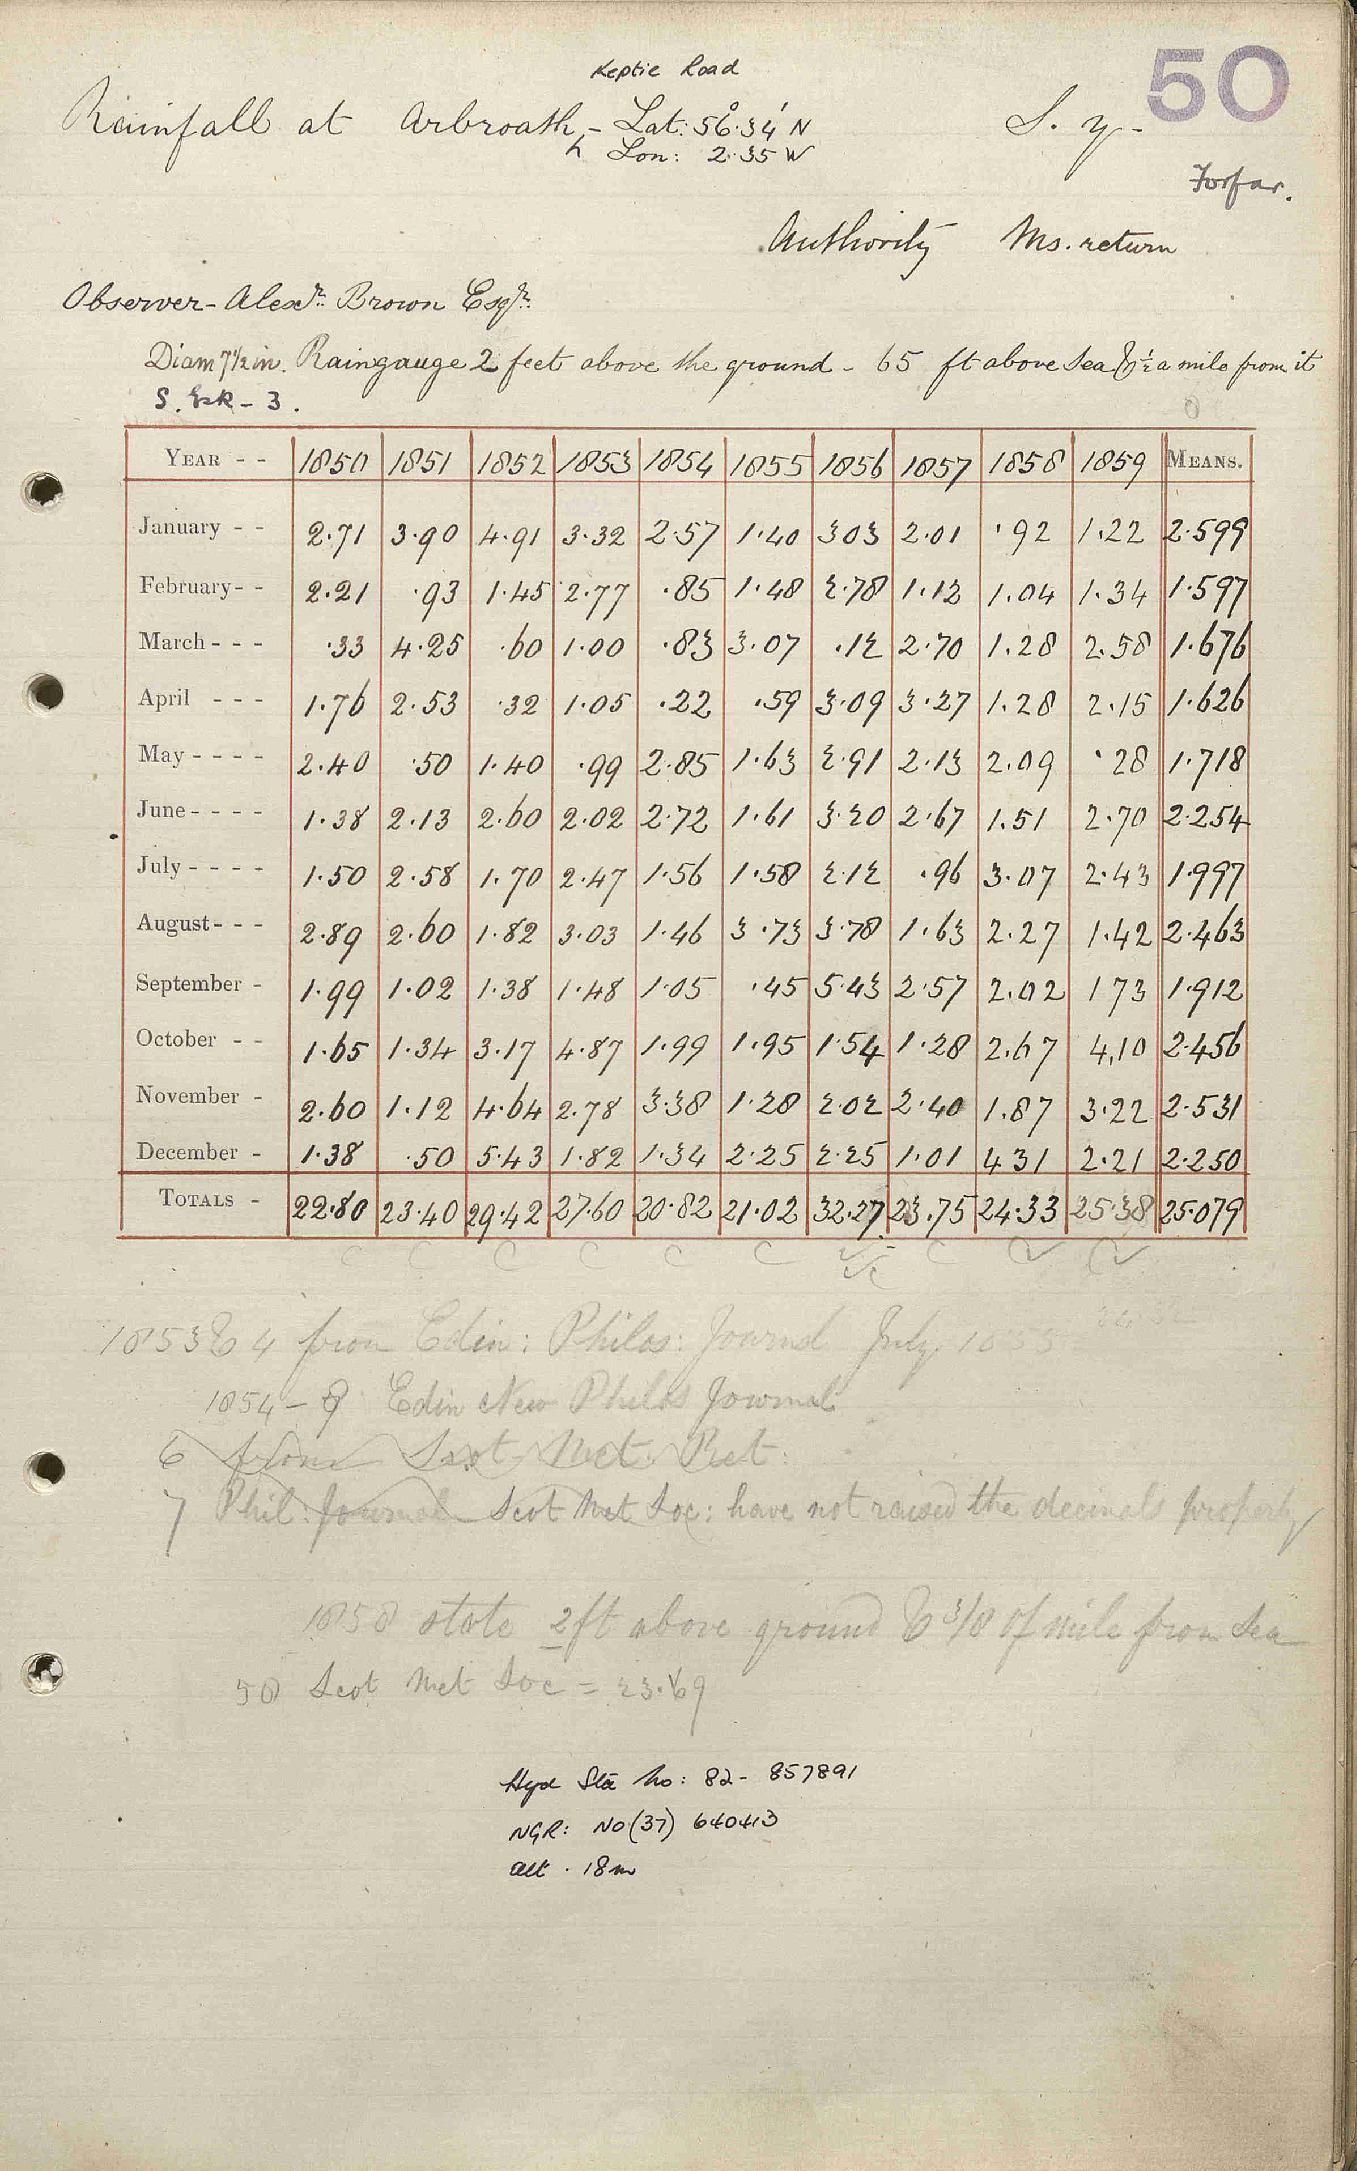 50
Keptie Road
Rainfall at Arbroath, - Lat: 56°.34' N
Lon: 2.35 W
S. y -
Forfar.
Authority Ms. return
Observer - Alexr. Brown Esqr.
Diam 7½ in. Raingauge 2 feet above the ground - 65 ft above Sea & ½ a mile from it
S. Esk - 3.
YEAR - - 1850 1851 1852 1853 1854 1855 1856 1857 1858 1859 MEANS.
January - - 2.71 3.90 4.91 3.32 2.57 1.40 3 03 2.01 .92 1.22 2.599
February - - 2.21 .93 1.45 2.77 .85 1.48 2.78 1.12 1.04 1.34 1.597
March - - - .33 4.25 .60 1.00 .83 3.07 .12 2.70 1.28 2.58 1.676
April - - - 1.76 2.53 .32 1.05 .22 .59 3.09 3.27 1.28 2.15 1.626
May - - - - 2.40 .50 1.40 .99 2.85 1.63 2.91 2.13 2.09 .28 1.718
June - - - - 1.38 2.13 2.60 2.02 2.72 1.61 3.20 2.67 1.51 2.70 2.254
July - - - - 1.50 2.58 1.70 2.47 1.56 1.58 2.12 .96 3.07 2.43 1.997
August - - - 2.89 2.60 1.82 3.03 1.46 3.73 3.78 1.63 2.27 1.42 2.463
September - 1.99 1.02 1.38 1.48 1.05 .45 5.43 2.57 2.02 1 73 1.912
October - - 1.65 1.34 3.17 4.87 1.99 1.95 1.54 1.28 2.67 4.10 2.456
November - 2.60 1.12 4.64 2.78 3.38 1.28 2.02 2.40 1.87 3.22 2.531
December - 1.38 .50 5.43 1.82 1.34 2.25 2.25 1.01 4 31 2.21 2.250
TOTALS - 22.80 23.40 29.42 27.60 20.82 21.02 32.27 23.75 24.33 25.38 25.079
1853 & 4 from Edin: Philos: Journal July
1854 - 9 Edin New Philos Journal
6 from Scot. Met. Ret:
7 Phil: Journal Scot Met Soc: have not raised the decimals properly
1858 state 2 ft above ground & 3/8 of mile from Sea
50 Scot Met Soc = 23.69
Hyd Sta No: 82 - 857891
NGR: NO (37) 640413
alt. 18m